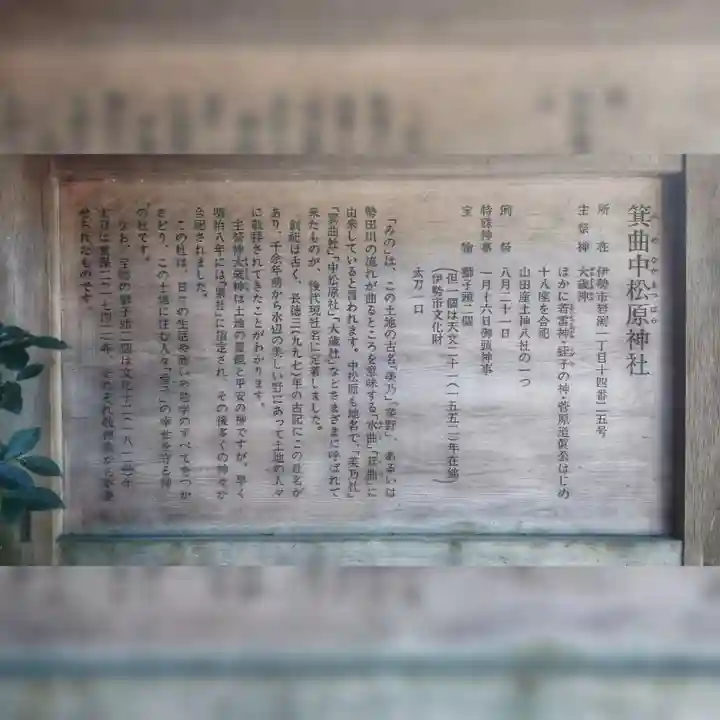 箕曲中松原神社
所在 伊勢市岩渕一丁目十四番二五号
主祭神 大歳神
ほかに若雷神・蛭子の神・菅原道眞公はじめ
十八座を合祀
山田産土神八社の一つ
例祭 八月二十一日
特殊神事 一月十六日御頭神事
宝物 獅子頭二個
(但一個は天文二十一(一五五二)年在銘)
(伊勢市文化財
太刀一口
「みの」は、この土地の古名「美乃」「茅野」、あるいは
勢田川の流れが曲るところを意味する「水曲」「箕曲」に
由来していると言われます。中松原も地名で、「美乃社」
「箕曲社」「中松原社」「大歳社」などさまざまに呼ばれて
来たものが、後代現社名に定着しました。
創祀は古く、長徳三(九九七)年の古記にこの社名が
あり、千余年前から水辺の美しい野にあって土地の人々
に敬拝されてきたことがわかります。
主祭神大歳神は土地の農穀と平安の神ですが、早く
明治八年には「郷社」に指定され、その後多くの神々が
合祀されました。
この社は、日々の生活や商いや勉学のすべてをつか
さどり、この土地に住む人々の幸せを守る神
の社です。
なお、宝物の獅子頭二個は文化十
せられたものです。